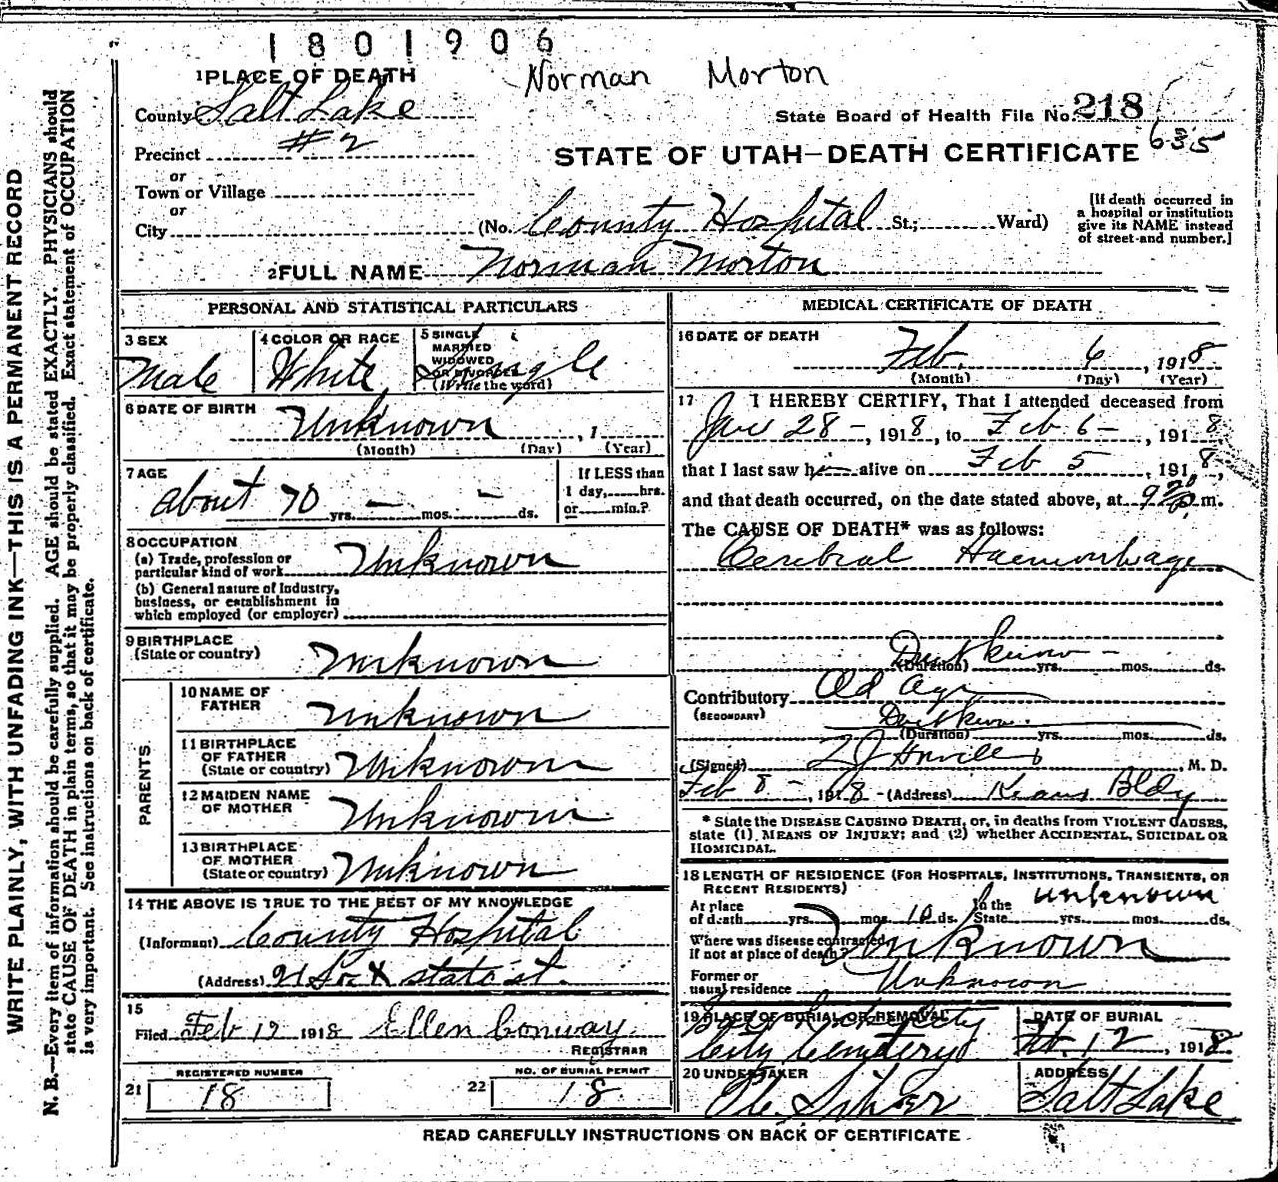 1801906
Norman Morton
1 PLACE OF DEATH
County Salt Lake
State Board of Health File No. 218
635
Precinct #2
STATE OF UTAH—DEATH CERTIFICATE
or
Town or Village
or
City (No. County Hospital St.; Ward)
[If death occurred in
a hospital or institution
give its NAME instead
of street and number.]
2 FULL NAME Norman Morton
PERSONAL AND STATISTICAL PARTICULARS
3 SEX
Male
4 COLOR OR RACE
White
5 SINGLE
MARRIED
WIDOWED
OR DIVORCED
(Write the word)
Single
6 DATE OF BIRTH
Unknown, 1
(Month) (Day) (Year)
7 AGE
about 70 yrs. — mos. — ds.
If LESS than
1 day, hrs.
or min.?
8 OCCUPATION
(a) Trade, profession or
particular kind of work Unknown
(b) General nature of industry,
business, or establishment in
which employed (or employer)
9 BIRTHPLACE
(State or country) Unknown
PARENTS
10 NAME OF
FATHER Unknown
11 BIRTHPLACE
OF FATHER
(State or country) Unknown
12 MAIDEN NAME
OF MOTHER Unknown
13 BIRTHPLACE
OF MOTHER
(State or country) Unknown
14 THE ABOVE IS TRUE TO THE BEST OF MY KNOWLEDGE
(Informant) County Hospital
(Address) 21 So & state st.
15
Filed Feb 12 1918 Ellen Conway
REGISTRAR
21 REGISTERED NUMBER
18
22 NO. OF BURIAL PERMIT
18
MEDICAL CERTIFICATE OF DEATH
16 DATE OF DEATH
Feb. 6, 1918
(Month) (Day) (Year)
17 I HEREBY CERTIFY, That I attended deceased from
Jan 28 -, 1918, to Feb 6 -, 1918,
that I last saw h— alive on Feb 5, 1918,
and that death occurred, on the date stated above, at 9 20 p. m.
The CAUSE OF DEATH* was as follows:
Cerebral Haemorrhage
Don't know -
(Duration) yrs. mos. ds.
Contributory Old Age
(SECONDARY)
Don't know.
(Duration) yrs. mos. ds.
(Signed) M. D.
Feb 8 -, 1918 - (Address) Kearns Bldg
* State the DISEASE CAUSING DEATH, or, in deaths from VIOLENT CAUSES,
state (1) MEANS OF INJURY; and (2) whether ACCIDENTAL, SUICIDAL OR
HOMICIDAL.
18 LENGTH OF RESIDENCE (FOR HOSPITALS, INSTITUTIONS, TRANSIENTS, OR
RECENT RESIDENTS)
At place
of death yrs. mos. 10 ds.
In the
State unknown yrs. mos. ds.
Where was disease contracted,
If not at place of death? Unknown
Former or
usual residence Unknown
19 PLACE OF BURIAL OR REMOVAL
City Cemetery
DATE OF BURIAL
Feb. 12, 1918
20 UNDERTAKER
ADDRESS
Salt Lake
READ CAREFULLY INSTRUCTIONS ON BACK OF CERTIFICATE
WRITE PLAINLY, WITH UNFADING INK—THIS IS A PERMANENT RECORD
N. B.—Every item of information should be carefully supplied. AGE should be stated EXACTLY. PHYSICIANS should
state CAUSE OF DEATH in plain terms, so that it may be properly classified. Exact statement of OCCUPATION
is very important. See instructions on back of certificate.